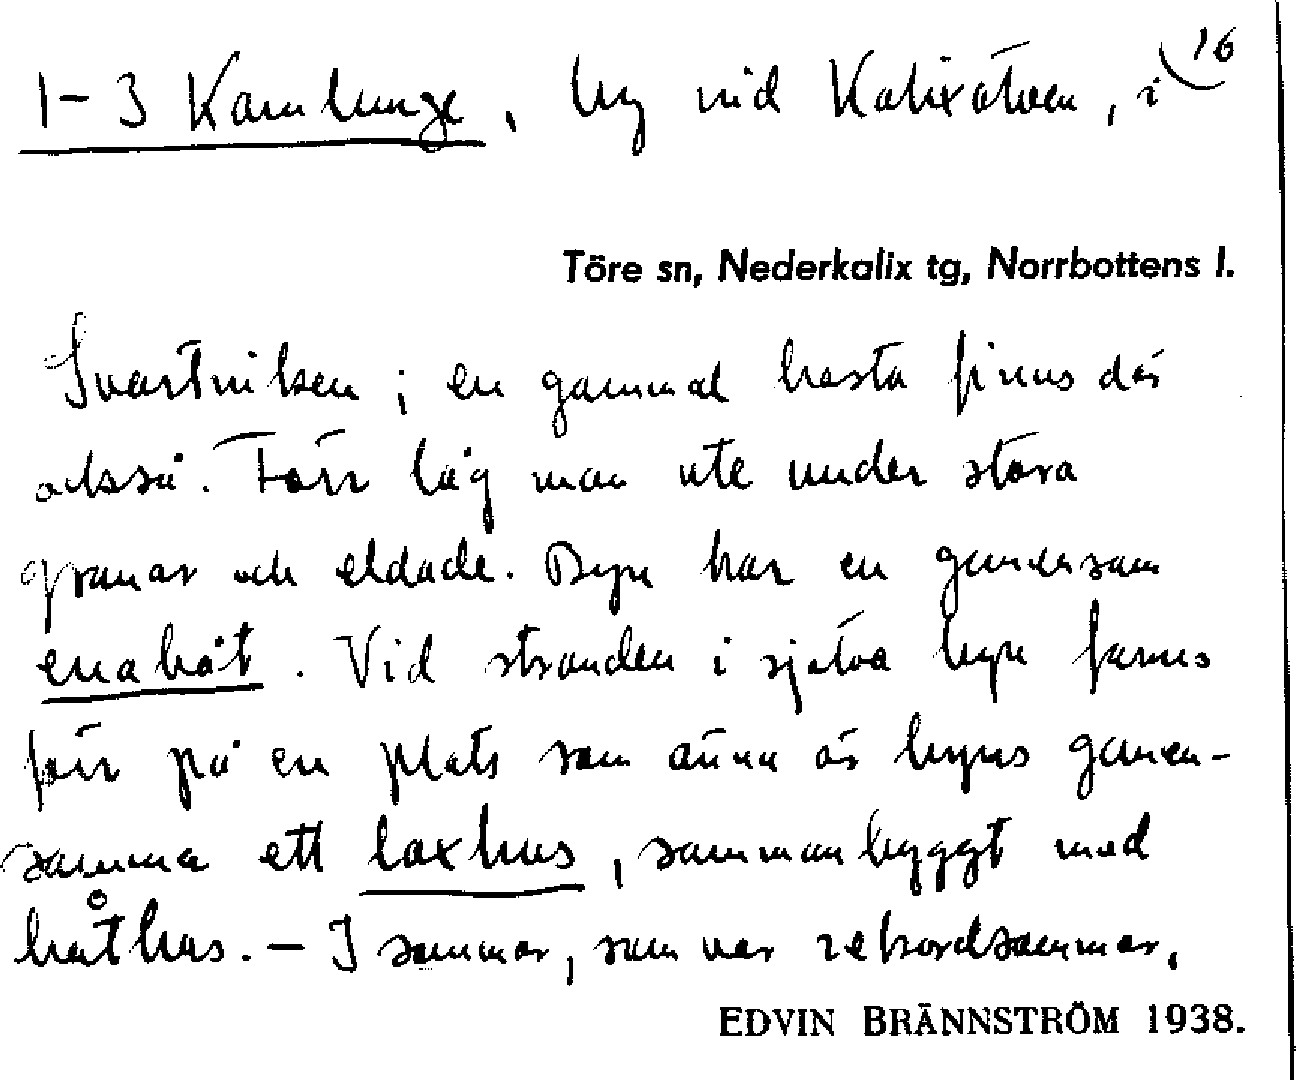 16
1-3 Kamlunge, by vid Kalixälven, i
Töre sn, Nederkalix tg, Norrbottens l.
Svartviken; en gammal basta finns där
också. Förr låg man ute under stora
granar och eldade. Byn har en gemensam
enabåt. Vid stranden i själva byn fanns
förr på en plats som ännu är byns gemen-
samma ett laxhus, sammanbyggt med
båthus. - I sommar, som var rekordsommar,
EDVIN BRÄNNSTRÖM 1938.